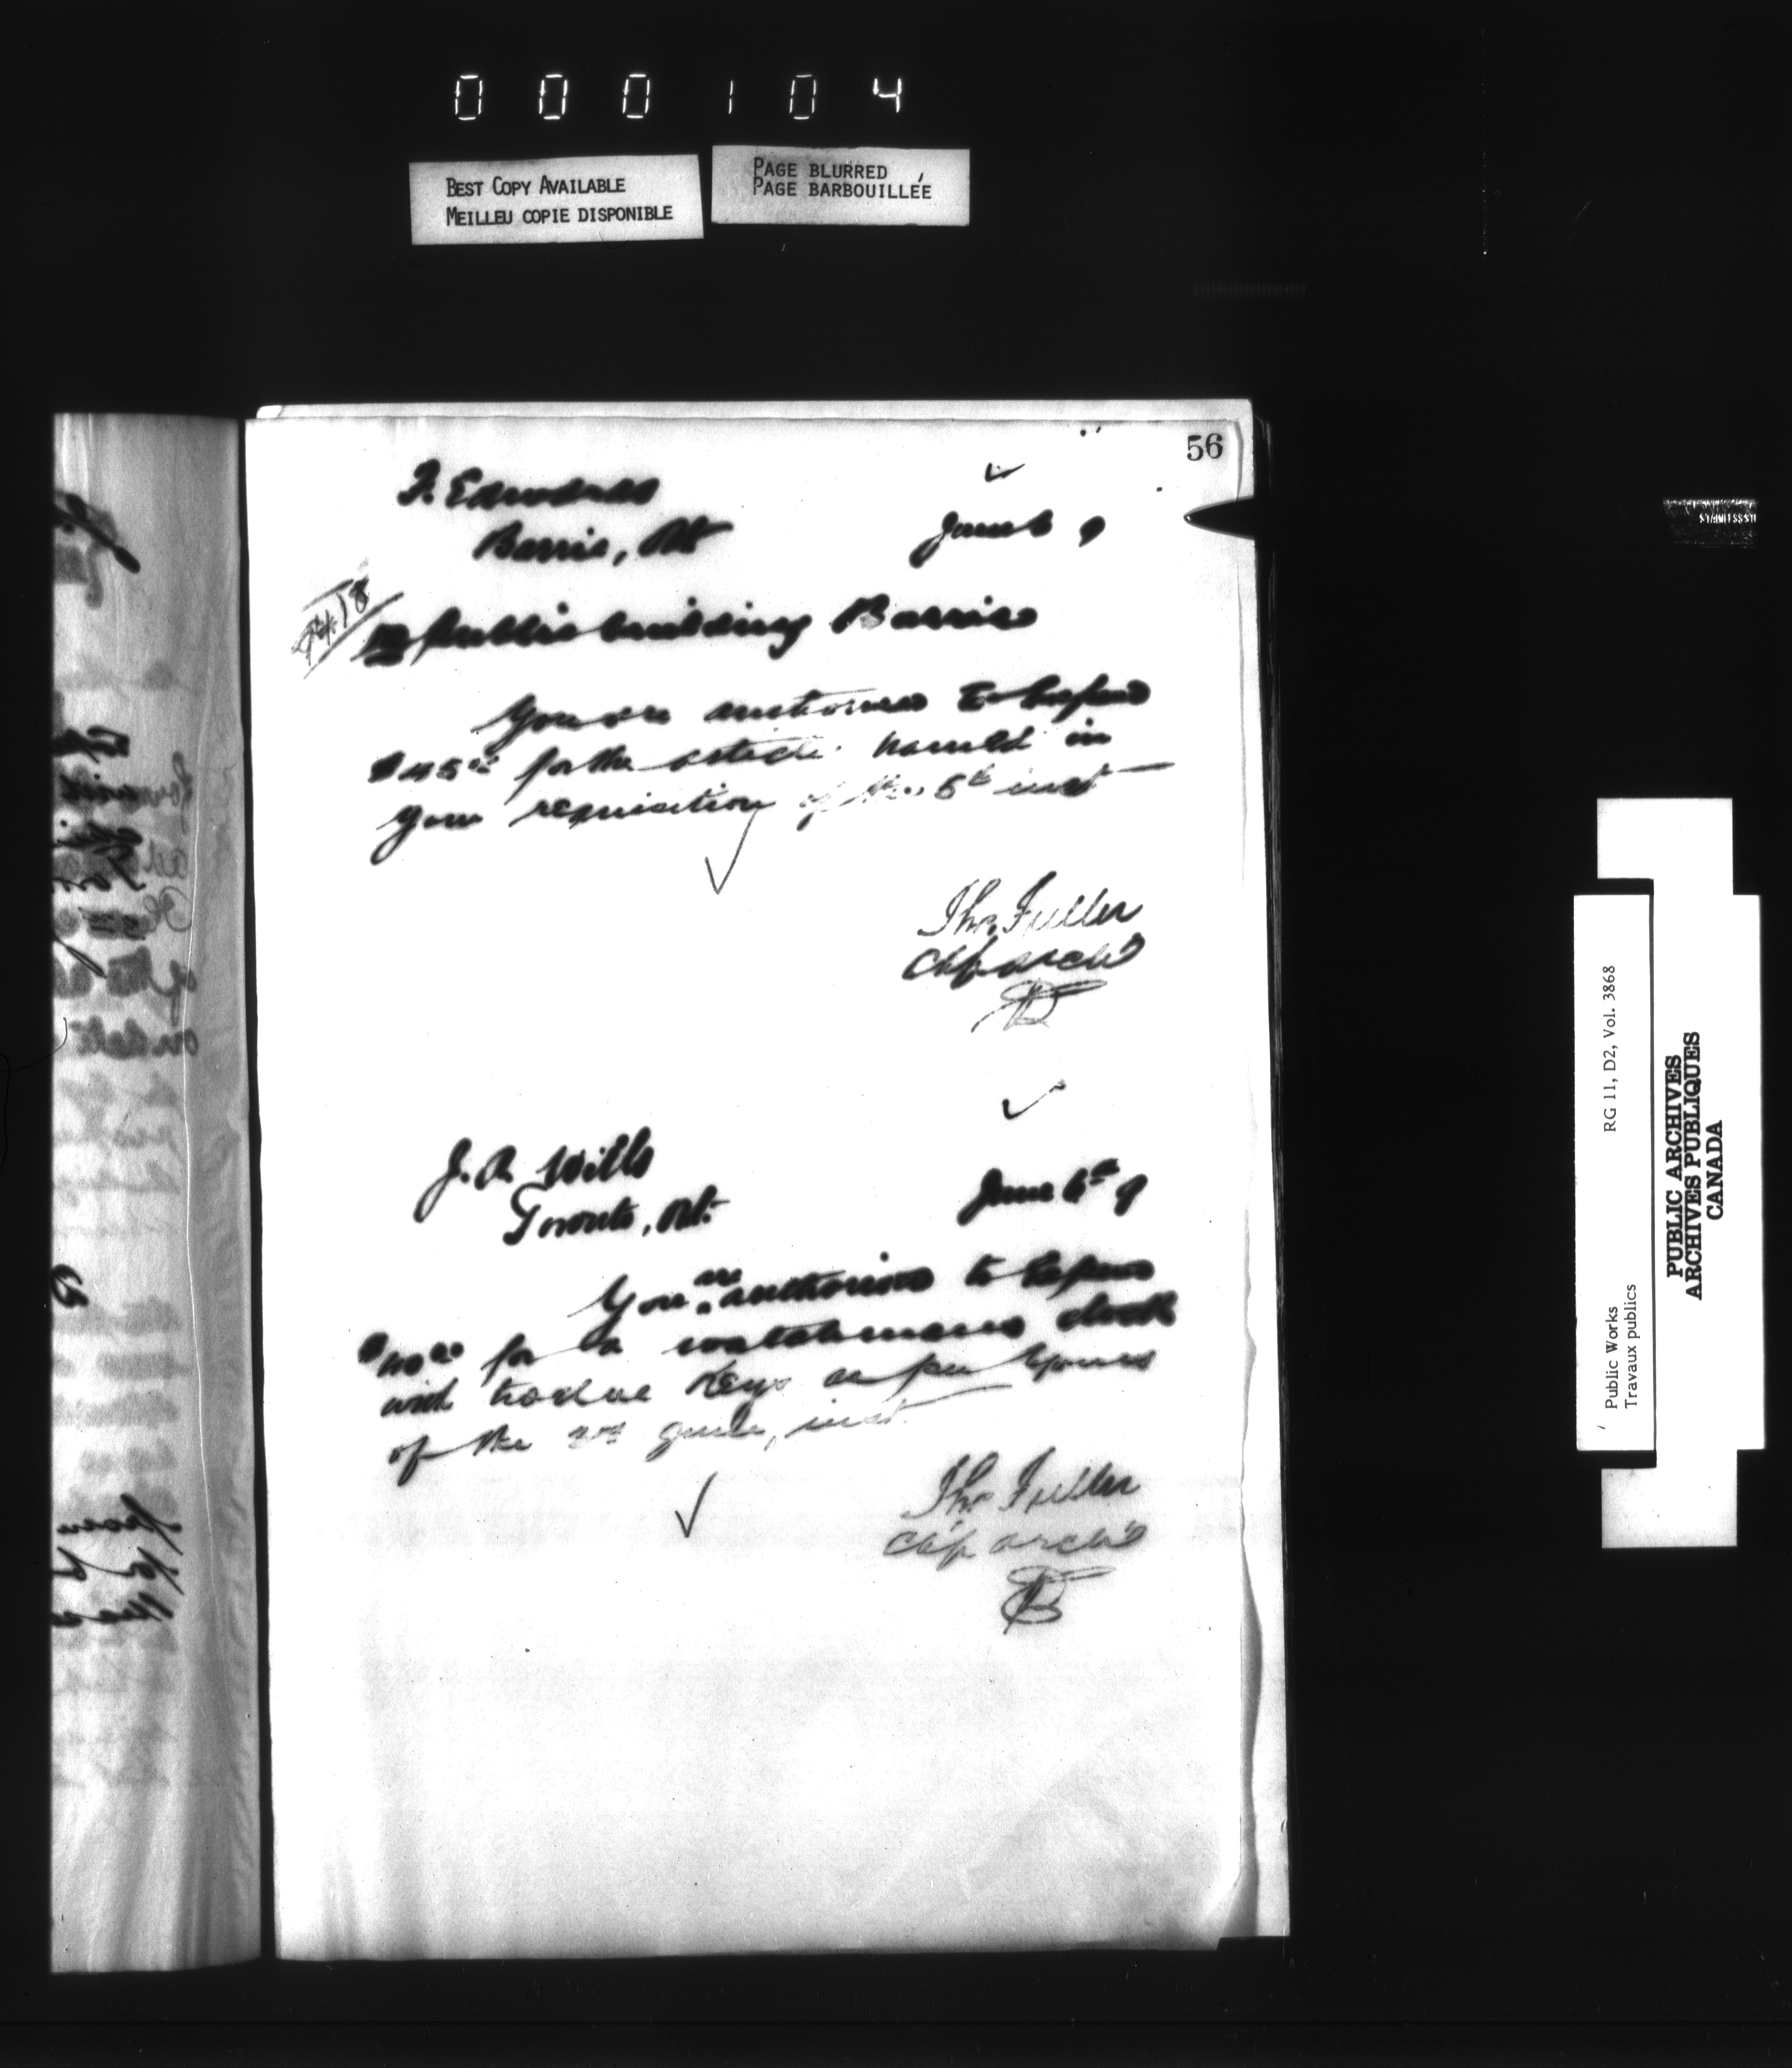 000104
BEST COPY AVAILABLE
MEILLEU COPIE DISPONIBLE
PAGE BLURRED
PAGE BARBOUILLÉE
56
F. Edwards
Barrie, Ont
June 6 9
Re public building Barrie
You are authorised to Expend
$45.00 for the article named in
your requisition of the 5th inst
Thos Fuller
Chf. arch't
J. A. Wills
Toronto, Ont.
June 6th 9
You are authorised to Expend
$40.00 for a watchmans clock
with twelve Keys as per Yours
of the inst.
Thos Fuller
Chf. arch't
RG 11, D2, Vol. 3868
Public Works
Travaux publics
PUBLIC ARCHIVES
ARCHIVES PUBLIQUES
CANADA